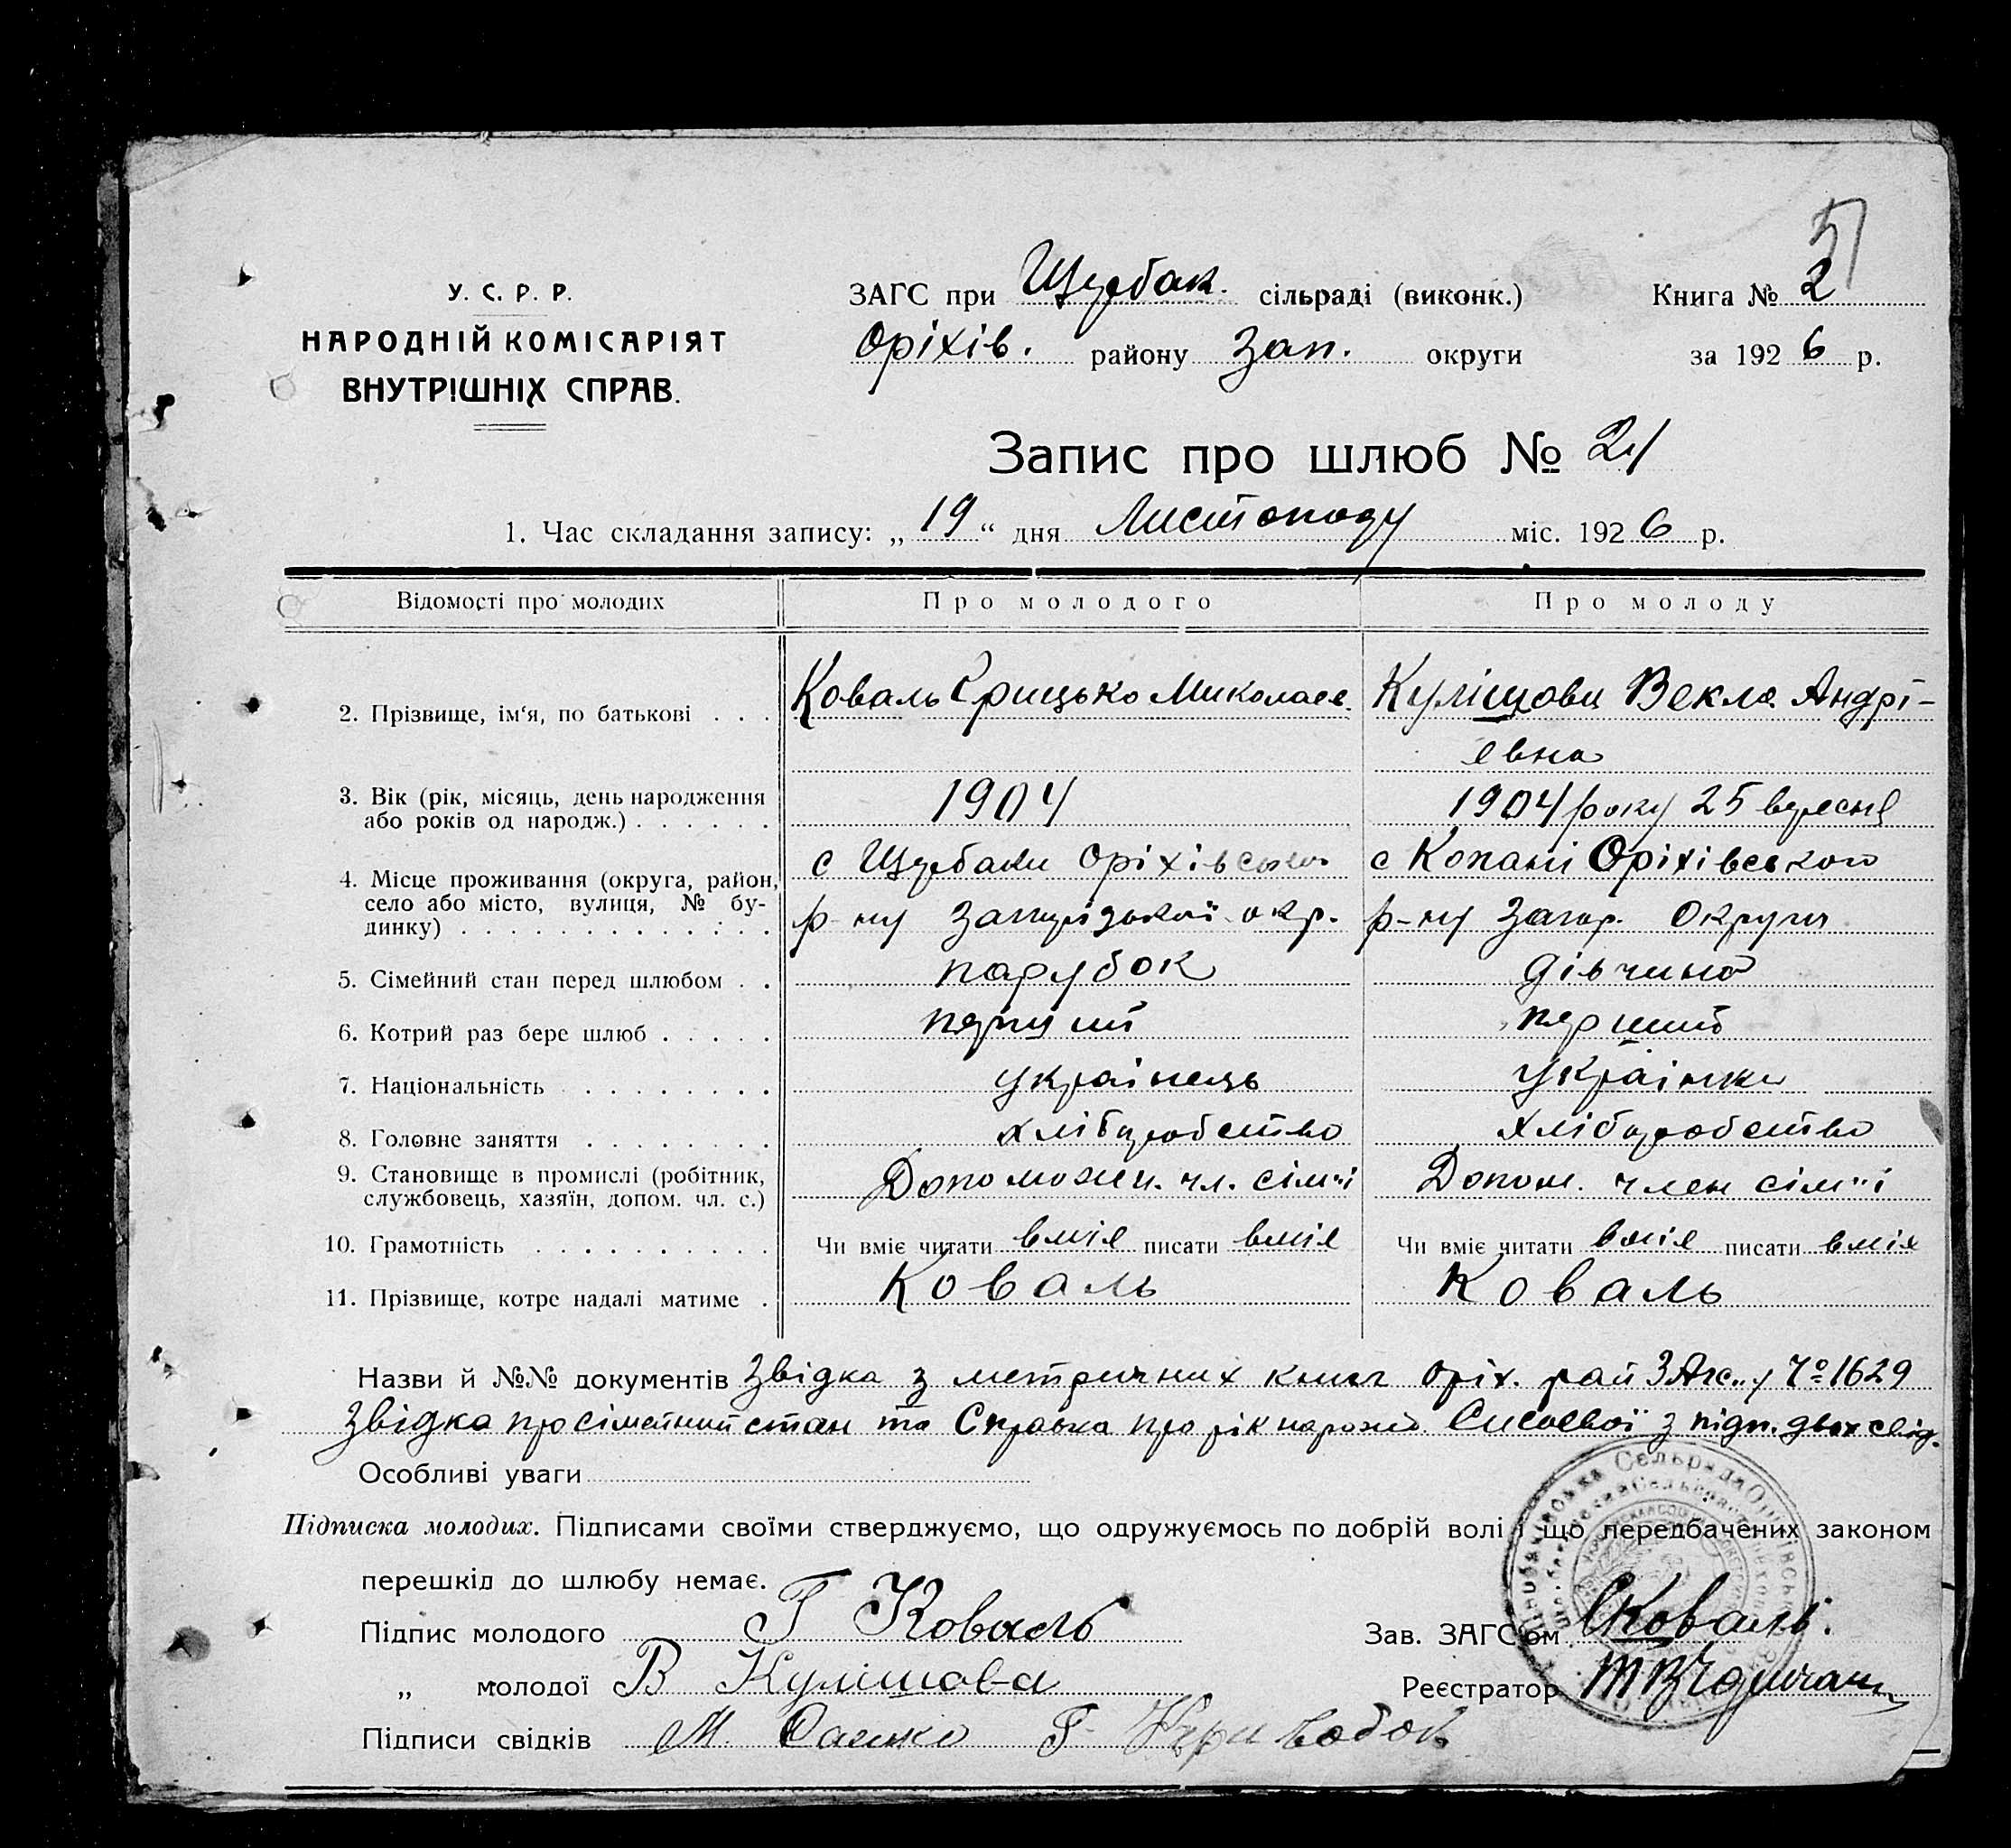 51
У. С. Р. Р.
НАРОДНІЙ КОМІСАРІЯТ
ВНУТРІШНІХ СПРАВ.
ЗАГС при Щербак. сільраді (виконк.) Книга № 2
Оріхів. району Зап. округи за 1926 р.
Запис про шлюб № 21
1. Час складання запису: „19“ дня Листопаду міс. 1926 р.
Відомості про молодих Про молодого Про молоду
2. Прізвище, ім‘я, по батькові . . . Коваль Грицько Миколаєв. Кулішова Векла Андрі-
евна
3. Вік (рік, місяць, день народження
або років од народж.) . . . . . . 1904 1904 року 25 вересня
4. Місце проживання (округа, район, с Щербаки Оріхівського с Копані Оріхівського
село або місто, вулиця, № бу-
динку) . . . . . . . . . . . . . р-ну Запорізької окр. р-ну Запор. Округи
5. Сімейний стан перед шлюбом . . парубок дівчина
6. Котрий раз бере шлюб . . . . . перший перший
7. Національність . . . . . . . . українець українка
8. Головне заняття . . . . . . . . хліборобство хліборобство
9. Становище в промислі (робітник,
службовець, хазяїн, допом. чл. с.) Допоможн. чл. сім"ї Допом. член сім"ї
10. Грамотність . . . . . . . . . . Чи вміє читати вміє писати вміє Чи вміє читати вміє писати вміє
11. Прізвище, котре надалі матиме . Коваль Коваль
Назви й №№ документів Звідка з метричних книг Оріх. рай ЗАгс.. № 1629
Звідка про сімейний стан та Справка про рік нарожд. з підп. двох свід.
Особливі уваги
Підписка молодих. Підписами своїми стверджуємо, що одружуємось по добрій волі і що передбачених законом
перешкід до шлюбу немає.
Підпис молодого Г Коваль Зав. ЗАГС'ом Коваль.
„ молодої В Кулішова Реєстратор
Підписи свідків М. Саенко Г.